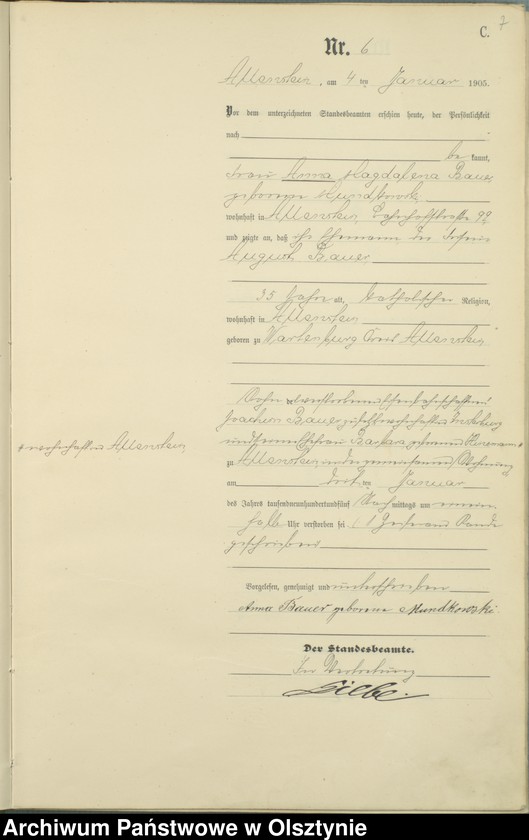 C. 7
Nr. 6
Allenstein, am 4 ten Januar 1905.
Vor dem unterzeichneten Standesbeamten erschien heute, der Persönlichkeit
nach
be kannt,
Frau Anna Magdalena Bauer
geborene Mundkowski
wohnhaft in Allenstein, Bahnhofstraße
und zeigte an, daß ihr Ehemann der
August Bauer
35 Jahre alt, katholischer Religion,
wohnhaft in Allenstein
geboren zu Wartenburg Kreis Allenstein
Sohn des verstorbenen
Joachim Bauer zuletzt wohnhaft in
und seiner Ehefrau Barbara geborenen
+ wohnhaft in Allenstein
zu Allenstein in der gemeinsamen Wohnung
am ten Januar
des Jahrs tausendneunhundertundfünf Nach mittags um
halb Uhr verstorben sei. 1 am Rande
geschrieben
Vorgelesen, genehmigt und unterschrieben
Anna Bauer geborene Mundkowski
Der Standesbeamte.
In Vertretung
Archiwum Państwowe w Olsztynie